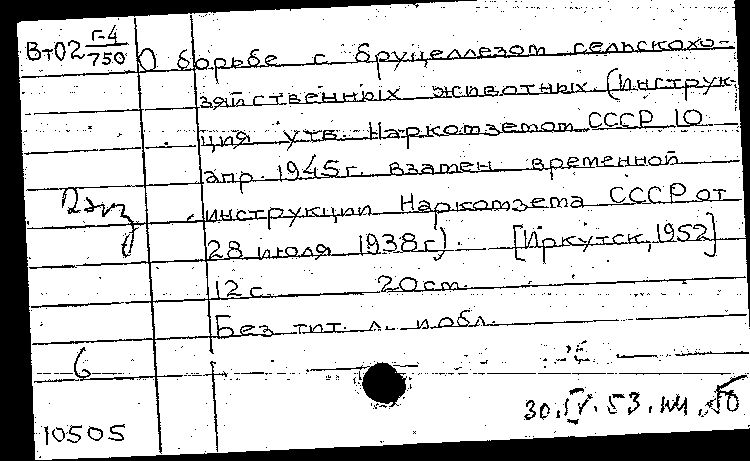 Г-4
Вт02 750 О борьбе с бруцеллезом сельскохо-
зяйственных животных. (Инструк-
ция утв. Наркомземом СССР 10
апр. 1945г. взамен временной
2 экз
инструкции Наркомзема СССР от
28 июля 1938г). [Иркутск, 1952]
12 с. 20 см.
Без тит. л. и обл.
6
30.IV.53.
10505